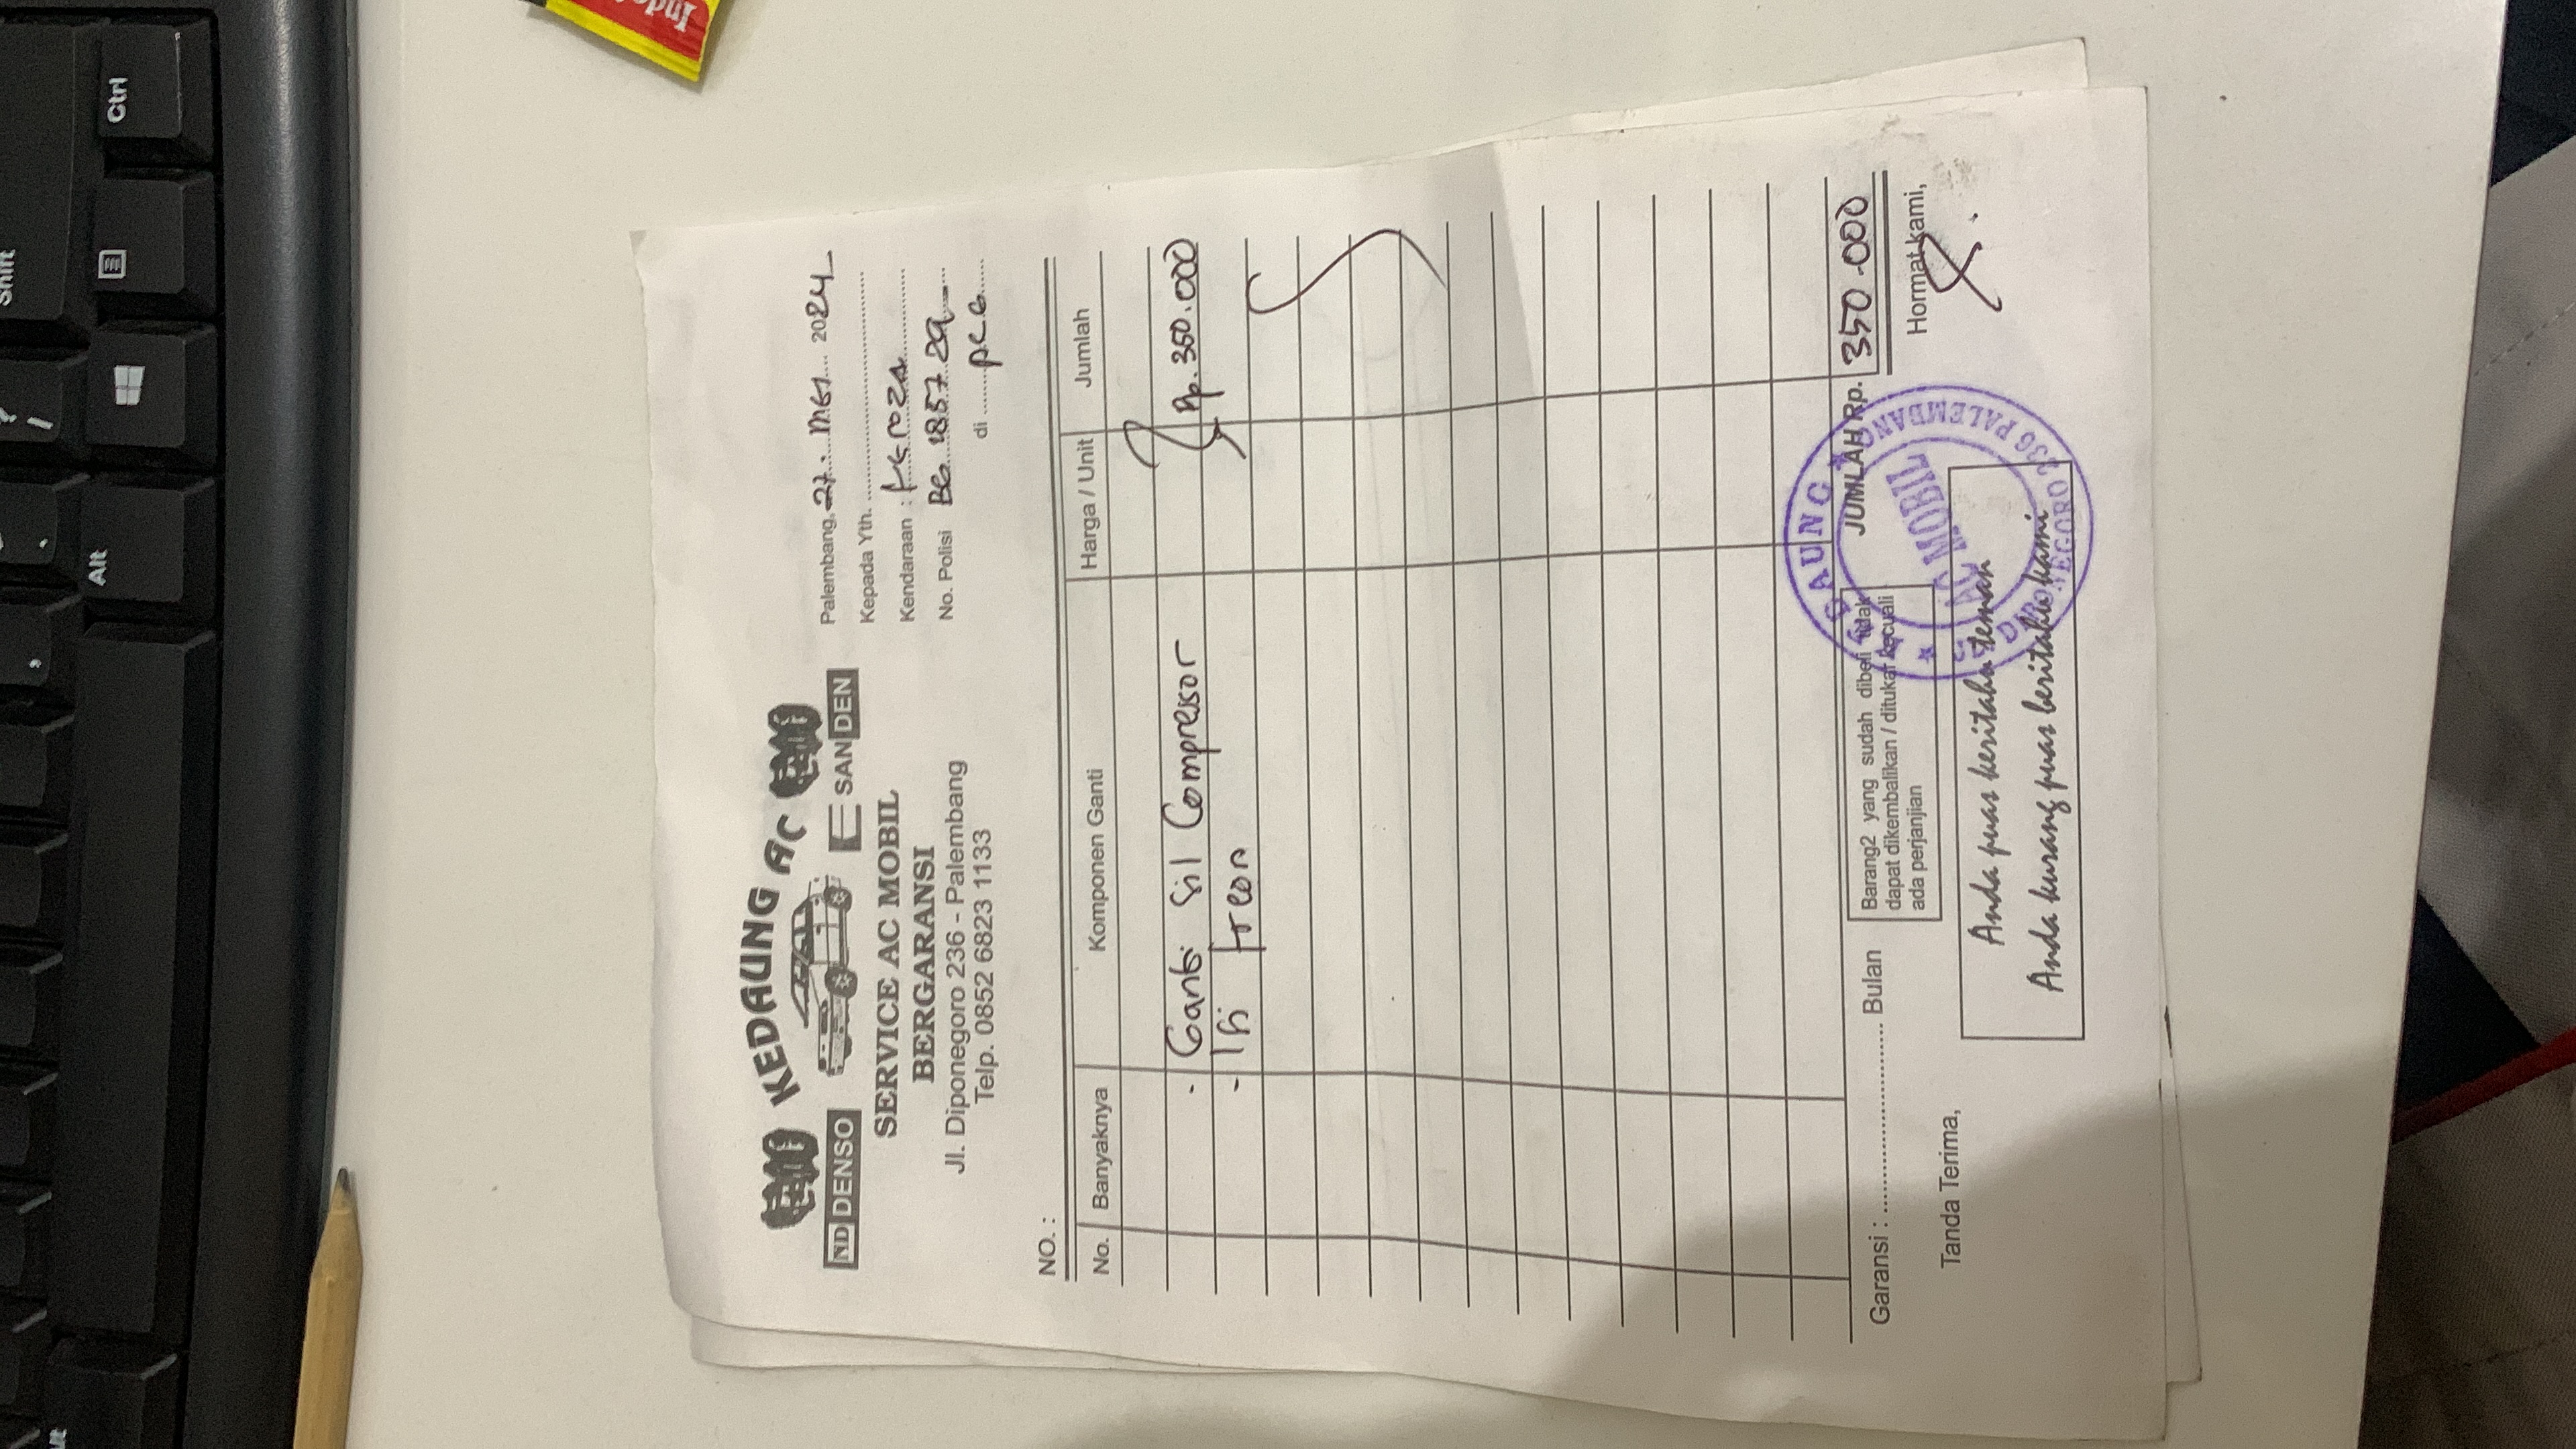 Shift
?
,
.
/
Alt
Ctrl
KEDAUNG AC
ND DENSO
SANDEN
SERVICE AC MOBIL
BERGARANSI
Jl. Diponegoro 236 - Palembang
Telp. 0852 6823 1133
Palembang, 27. Mei 2024
Kepada Yth.
Kendaraan : Feroza
No. Polisi BG 1857 ZQ
di PLG
NO. :
No. Banyaknya Komponen Ganti Harga / Unit Jumlah
- Ganti Sil Compressor Rp. 350.000
- Isi Freon
JUMLAH Rp. 350.000
Garansi : Bulan
Barang2 yang sudah dibeli tidak
dapat dikembalikan / ditukar kecuali
ada perjanjian
Tanda Terima,
Hormat kami,
Anda puas keritahu teman
Anda kurang puas beritahu kami
KEDAUNG
AC MOBIL
JL. DIPONEGORO 236 PALEMBANG